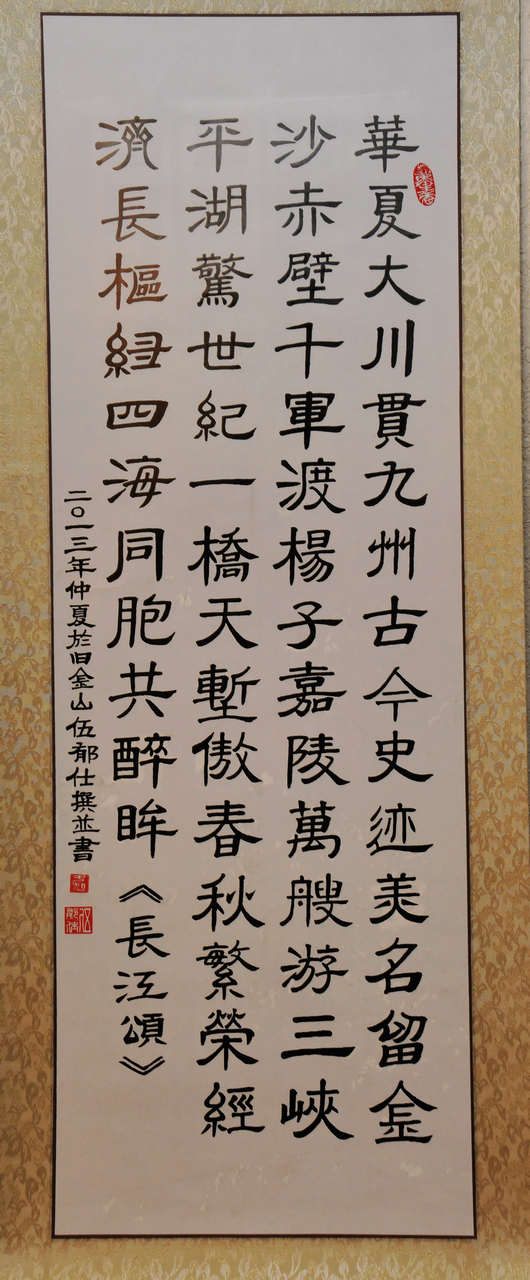 華夏大川貫九州古今史迹美名留金
沙赤壁千軍渡楊子嘉陵萬艘游三峽
平湖驚世紀一橋天塹傲春秋繁榮經
濟長樞紐四海同胞共醉眸《長江頌》
二〇一三年仲夏於旧金山伍郁仕撰並書